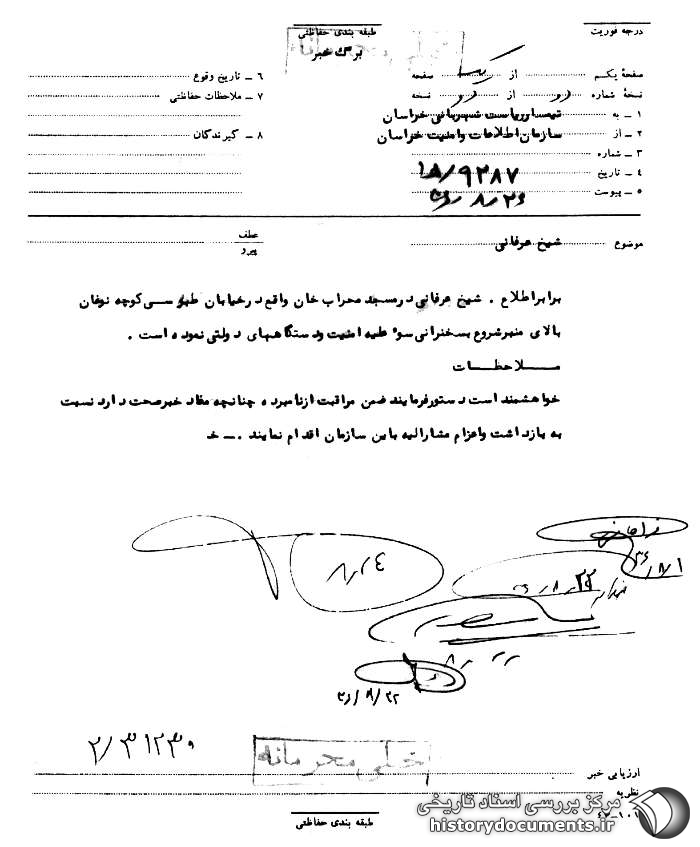 درجه فوریت
طبقه بندی حفاظتی
خیلی محرمانه
برگ خبر
صفحهٔ یکم از یک صفحه
نسخهٔ شماره از نسخه
۱ ـ به تیمسار ریاست شهربانی خراسان
۲ ـ از سازمان اطلاعات و امنیت خراسان
۳ ـ شماره
۴ ـ تاریخ ۱۸/۹۲۸۷
۵ ـ پیوست ۵۶/۸/۲۶
۶ ـ تاریخ وقوع
۷ ـ ملاحظات حفاظتی
۸ ـ گیرندگان
موضوع شیخ عرفانی
عطف
پیرو
برابر اطلاع . شیخ عرفانی در مسجد محراب خان واقع در خیابان طبرسی کوچه نوغان
بالای منبر شروع بسخنرانی سوء علیه امنیت و دستگاههای دولتی نموده است .
ملاحظات
خواهشمند است دستور فرمایند ضمن مراقبت از نامبرده چنانچه مفاد خبر صحت دارد نسبت
به بازداشت واعزام مشارالیه باین سازمان اقدام نمایند . ـ خ
۲/۳۱۲۳۰
خیلی محرمانه
ارزیابی خبر
نظریه
طبقه بندی حفاظتی
مرکز بررسی اسناد تاریخی
historydocuments.ir